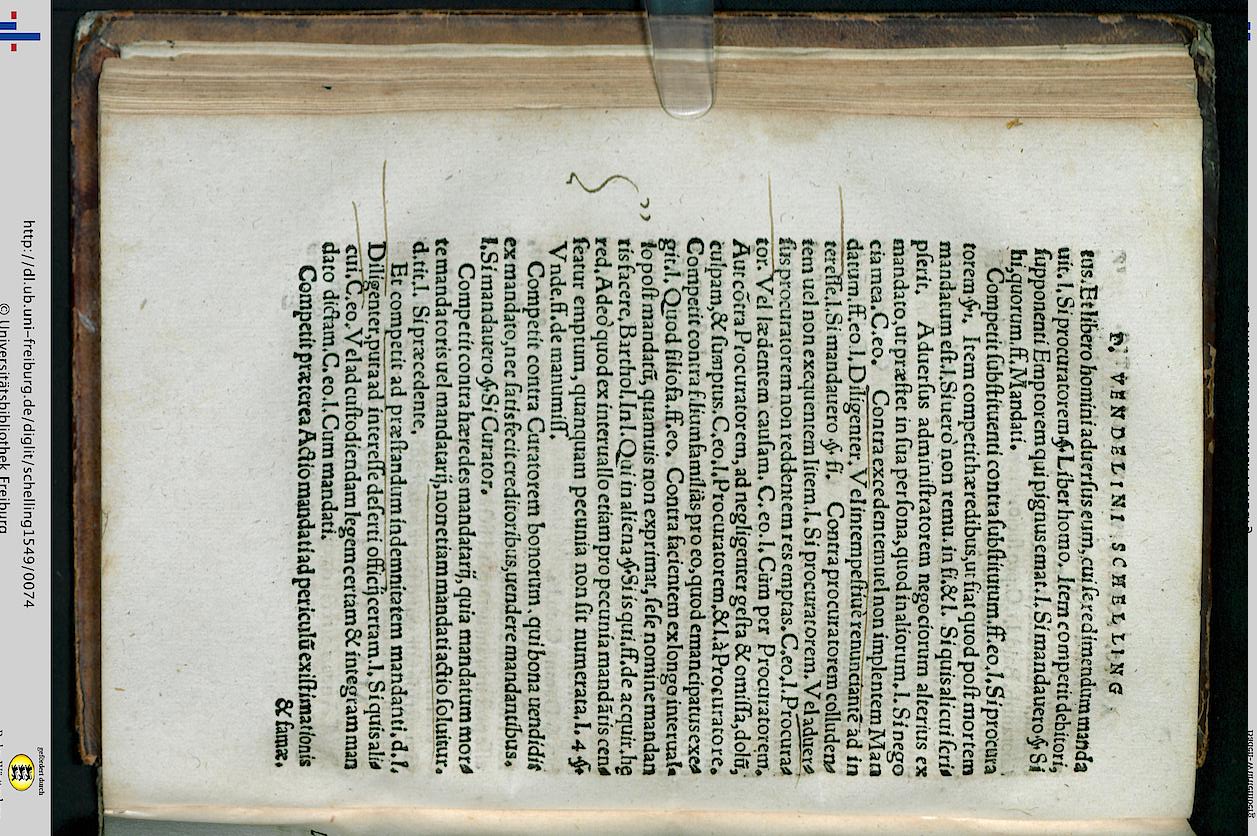 D. VENDELINI SCHELLING
tus. Et libero homini aduersus eum, cui se redimendum manda
uit. l. Si procuratorem §. Liber homo. Item competit debitori,
supponenti Emptorem qui pignus emat. l. Si mandauero §. Si
hi, quorum. ff. Mandati.
Competit substituenti contra substitutum. ff. eo. l. Si procura
torem §. 1. Item competit hæredibus, ut fiat quod post mortem
mandatum est. l. Si uerò non remu. in fi. & l. Si quis alicui scri⸗
pserit. Aduersus administratorem negociorum alterius ex
mandato, ut præstet in sua persona, quod in aliorum. l. Si nego
cia mea. C. eo. Contra excedentem uel non implentem Man
datum. ff. eo. l. Diligenter. Vel intempestiuè renunciantē ad in
teresse. l. Si mandauero §. fi. Contra procuratorem colluden⸗
tem uel non exequentem litem. l. Si procuratorem. Vel aduer⸗
sus procuratorem non reddentem res emptas. C. eo. l. Procura⸗
tor. Vel lædentem causam. C. eo. l. Cùm per Procuratorem.
Aut cōtra Procuratorem, ad negligenter gesta & omissa, dolū,
culpam, & sumptus. C. eo. l. Procuratorem, & l. à Procuratore.
Competit contra filiumfamiliâs pro eo, quod emancipatus exe⸗
git. l. Quod filiofa. ff. eo. Contra facientem ex longo interual⸗
lo post mandatū, quamuis non exprimat, sese nomine mandan
tis facere, Barthol. In l. Qui in aliena §. Si is qui, ff. de acquir. hę
red. Adeò quod ex interuallo etiam pro pecunia mandātis cen⸗
seatur emptum, quanquam pecunia non sit numerata. l. 4. §.
Vnde, ff. de manumiss.
Competit contra Curatorem bonorum, qui bona uendidit
ex mandato, nec satisfecit creditoribus, uendere mandantibus.
l. Si mandauero §. Si Curator.
Competit contra hæredes mandatarij, quia mandatum mor⸗
te mandatoris uel mandatarij, non etiam mandati actio soluitur.
d. tit. l. Si præcedente.
Et competit ad præstandum indemnitatem mandanti, d. l.
Diligenter, puta ad interesse deserti officij certam. l. Si quis ali⸗
cui, C. eo. Vel ad custodiendam legem certam & integram man
dato dictam. C. eo. l. Cùm mandati.
Competit præterea Actio mandati ad periculū existimationis
& famæ.
http://dl.ub.uni-freiburg.de/diglit/schelling1549/0074
© Universitätsbibliothek Freiburg
gefördert durch